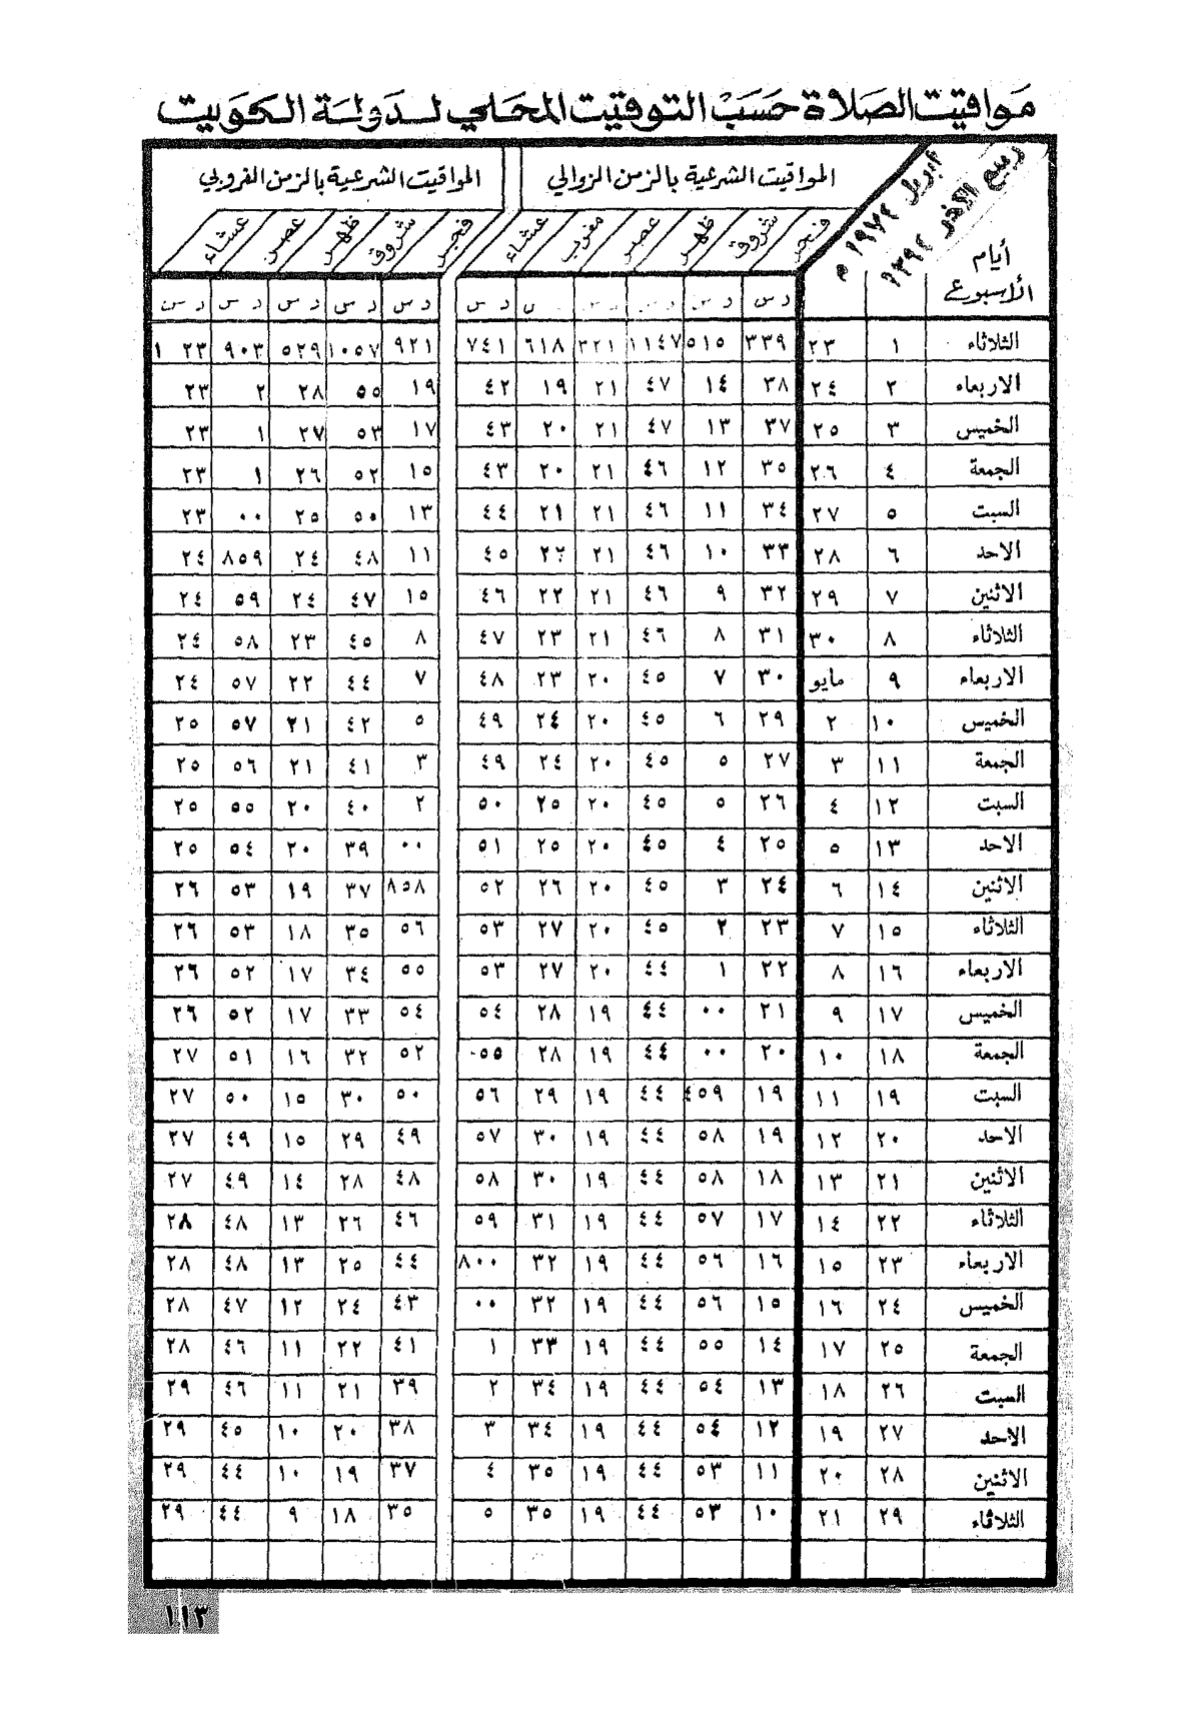 مواقيت الصلاة حسب التوقيت المحلي لدولة الكويت
ربيع الآخر ١٣٩٤ه أبريل ١٩٧٤م المواقيت الشرعية بالزمن الزوالي المواقيت الشرعية بالزمن الغروبي
أيام الأسبوع فجر شروق ظهر عصر مغرب عشاء فجر شروق ظهر عصر عشاء
د س د س د س د س س د س د س د س د س د س د س
الثلاثاء ١ ٢٣ ٣٣٩ ٥١٥ ١١٤٧ ٣٢١ ٦١٨ ٧٤١ ٩٢١ ١٠٥٧ ٥٢٩ ٩٠٣ ١ ٢٣
الاربعاء ٢ ٢٤ ٣٨ ١٤ ٤٧ ٢١ ١٩ ٤٢ ١٩ ٥٥ ٢٨ ٢ ٢٣
الخميس ٣ ٢٥ ٣٧ ١٣ ٤٧ ٢١ ٢٠ ٤٣ ١٧ ٥٣ ٢٧ ١ ٢٣
الجمعة ٤ ٢٦ ٣٥ ١٢ ٤٦ ٢١ ٢٠ ٤٣ ١٥ ٥٢ ٢٦ ١ ٢٣
السبت ٥ ٢٧ ٣٤ ١١ ٤٦ ٢١ ٢١ ٤٤ ١٣ ٥٠ ٢٥ ٠٠ ٢٣
الاحد ٦ ٢٨ ٣٣ ١٠ ٤٦ ٢١ ٢٢ ٤٥ ١١ ٤٨ ٢٤ ٨٥٩ ٢٤
الاثنين ٧ ٢٩ ٣٢ ٩ ٤٦ ٢١ ٢٢ ٤٦ ١٥ ٤٧ ٢٤ ٥٩ ٢٤
الثلاثاء ٨ ٣٠ ٣١ ٨ ٤٦ ٢١ ٢٣ ٤٧ ٨ ٤٥ ٢٣ ٥٨ ٢٤
الاربعاء ٩ مايو ٣٠ ٧ ٤٥ ٢٠ ٢٣ ٤٨ ٧ ٤٤ ٢٢ ٥٧ ٢٤
الخميس ١٠ ٢ ٢٩ ٦ ٤٥ ٢٠ ٢٤ ٤٩ ٥ ٤٢ ٢١ ٥٧ ٢٥
الجمعة ١١ ٣ ٢٧ ٥ ٤٥ ٢٠ ٢٤ ٤٩ ٣ ٤١ ٢١ ٥٦ ٢٥
السبت ١٢ ٤ ٢٦ ٥ ٤٥ ٢٠ ٢٥ ٥٠ ٢ ٤٠ ٢٠ ٥٥ ٢٥
الاحد ١٣ ٥ ٢٥ ٤ ٤٥ ٢٠ ٢٥ ٥١ ٠٠ ٣٩ ٢٠ ٥٤ ٢٥
الاثنين ١٤ ٦ ٢٤ ٣ ٤٥ ٢٠ ٢٦ ٥٢ ٨٥٨ ٣٧ ١٩ ٥٣ ٢٦
الثلاثاء ١٥ ٧ ٢٣ ٢ ٤٥ ٢٠ ٢٧ ٥٣ ٥٦ ٣٥ ١٨ ٥٣ ٢٦
الاربعاء ١٦ ٨ ٢٢ ١ ٤٤ ٢٠ ٢٧ ٥٣ ٥٥ ٣٤ ١٧ ٥٢ ٢٦
الخميس ١٧ ٩ ٢١ ٠٠ ٤٤ ١٩ ٢٨ ٥٤ ٥٤ ٣٣ ١٧ ٥٢ ٢٦
الجمعة ١٨ ١٠ ٢٠ ٠٠ ٤٤ ١٩ ٢٨ ٥٥ ٥٢ ٣٢ ١٦ ٥١ ٢٧
السبت ١٩ ١١ ١٩ ٤٥٩ ٤٤ ١٩ ٢٩ ٥٦ ٥٠ ٣٠ ١٥ ٥٠ ٢٧
الاحد ٢٠ ١٢ ١٩ ٥٨ ٤٤ ١٩ ٣٠ ٥٧ ٤٩ ٢٩ ١٥ ٤٩ ٢٧
الاثنين ٢١ ١٣ ١٨ ٥٨ ٤٤ ١٩ ٣٠ ٥٨ ٤٨ ٢٨ ١٤ ٤٩ ٢٧
الثلاثاء ٢٢ ١٤ ١٧ ٥٧ ٤٤ ١٩ ٣١ ٥٩ ٤٦ ٢٦ ١٣ ٤٨ ٢٨
الاربعاء ٢٣ ١٥ ١٦ ٥٦ ٤٤ ١٩ ٣٢ ٨٠٠ ٤٤ ٢٥ ١٣ ٤٨ ٢٨
الخميس ٢٤ ١٦ ١٥ ٥٦ ٤٤ ١٩ ٣٢ ٠٠ ٤٣ ٢٤ ١٢ ٤٧ ٢٨
الجمعة ٢٥ ١٧ ١٤ ٥٥ ٤٤ ١٩ ٣٣ ١ ٤١ ٢٢ ١١ ٤٦ ٢٨
السبت ٢٦ ١٨ ١٣ ٥٤ ٤٤ ١٩ ٣٤ ٢ ٣٩ ٢١ ١١ ٤٦ ٢٩
الاحد ٢٧ ١٩ ١٢ ٥٤ ٤٤ ١٩ ٣٤ ٣ ٣٨ ٢٠ ١٠ ٤٥ ٢٩
الاثنين ٢٨ ٢٠ ١١ ٥٣ ٤٤ ١٩ ٣٥ ٤ ٣٧ ١٩ ١٠ ٤٤ ٢٩
الثلاثاء ٢٩ ٢١ ١٠ ٥٣ ٤٤ ١٩ ٣٥ ٥ ٣٥ ١٨ ٩ ٤٤ ٢٩
١١٣